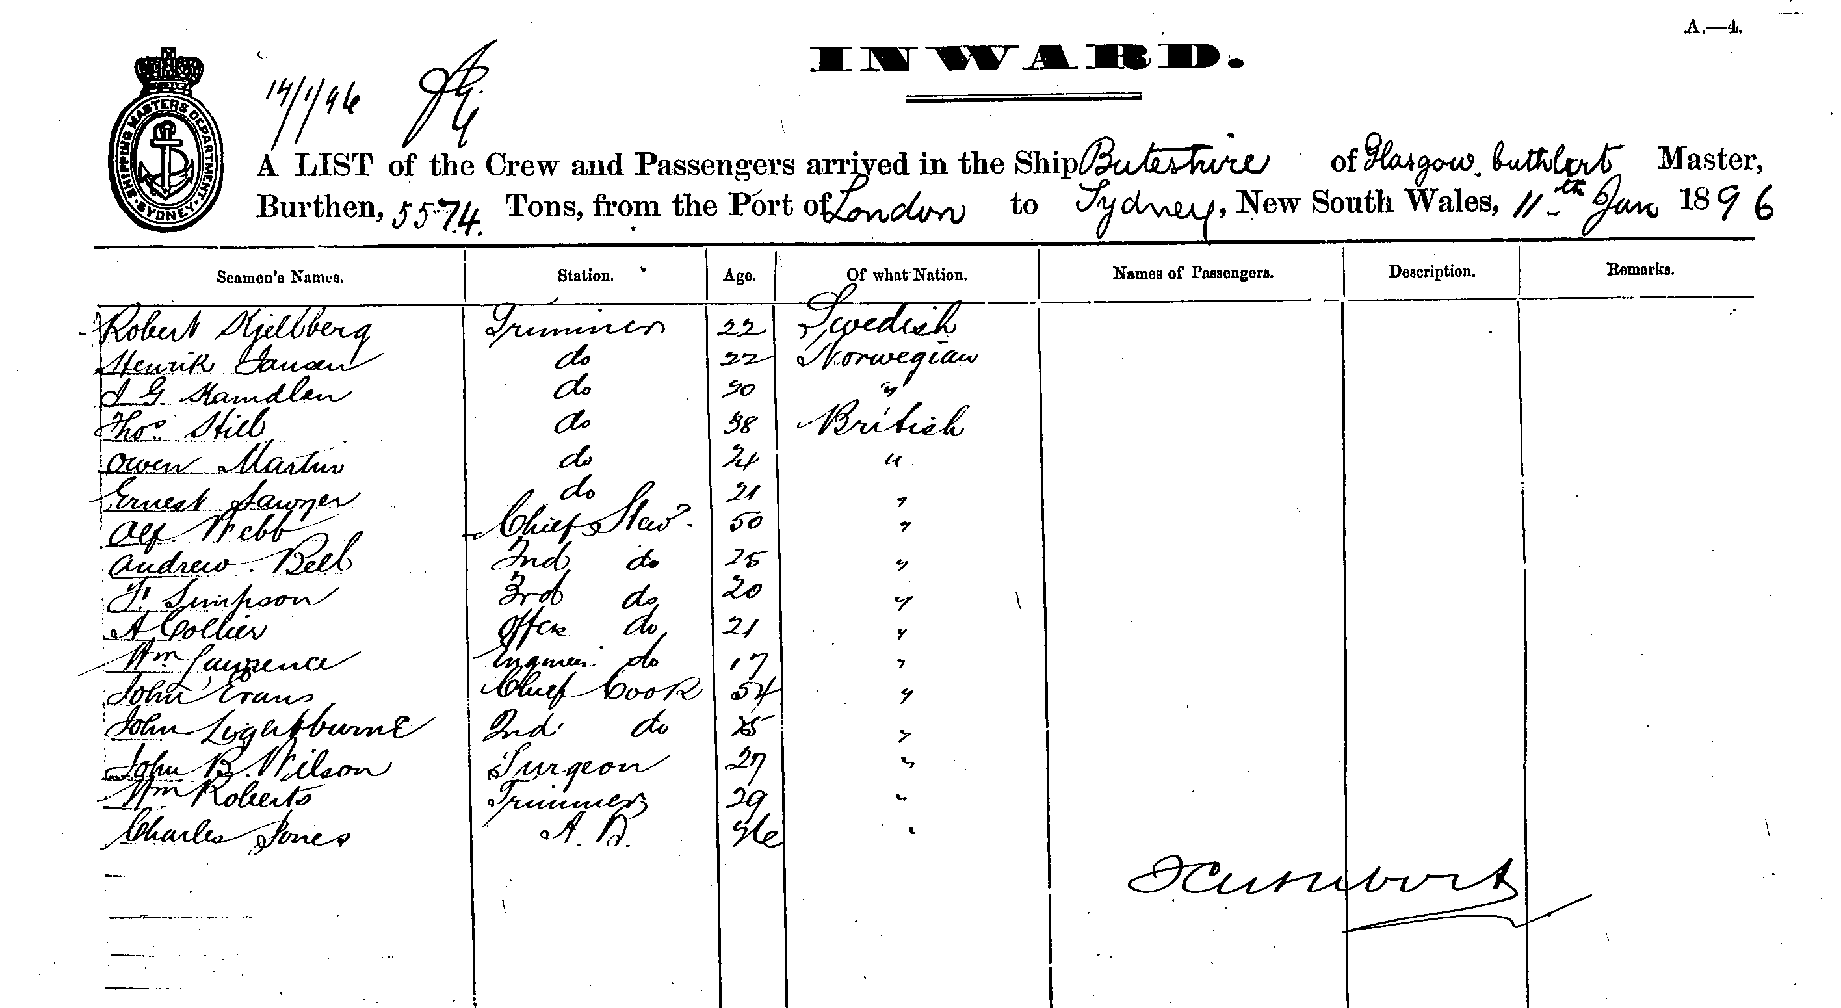 A.—4.
INWARD.
14/1/96
SHIPPING MASTERS DEPARTMENT
SYDNEY
A LIST of the Crew and Passengers arrived in the Ship Buteshire of Glasgow, Cuthbert Master,
Burthen, 5574 Tons, from the Port of London to Sydney, New South Wales, 11th Jan 1896
Seamen's Names. Station. Age. Of what Nation. Names of Passengers. Description. Remarks.
Robert Kjellberg Trimmer 22 Swedish
Henrik Jansen do 22 Norwegian
J G do 30 "
Thos Still do 38 British
Owen Martin do 24 "
Ernest Sawyer do 21 "
Alf Webb Chief Stewd. 50 "
Andrew Bell 2nd do 25 "
Simpson 3rd do 20 "
A Collier Offrs do 21 "
Wm Lawrence Engineers do 17 "
John Evans Chief Cook 54 "
John Lightburne 2nd do "
John B. Wilson Surgeon 27 "
Wm Roberts Trimmer 29 "
Charles Jones A.B. "
Cuthbert